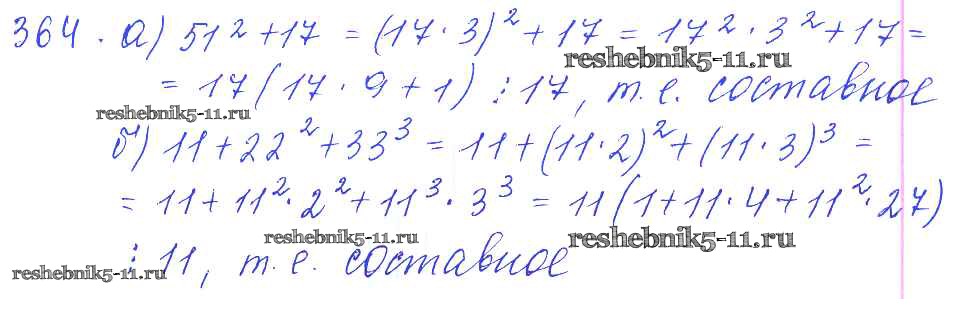 364. а) 51² + 17 = (17·3)² + 17 = 17²·3² + 17 =
reshebnik5-11.ru
= 17(17·9 + 1) ⋮ 17, т.е. составное
reshebnik5-11.ru
б) 11 + 22² + 33³ = 11 + (11·2)² + (11·3)³ =
= 11 + 11²·2² + 11³·3³ = 11(1 + 11·4 + 11²·27)
reshebnik5-11.ru reshebnik5-11.ru
⋮ 11, т.е. составное
reshebnik5-11.ru